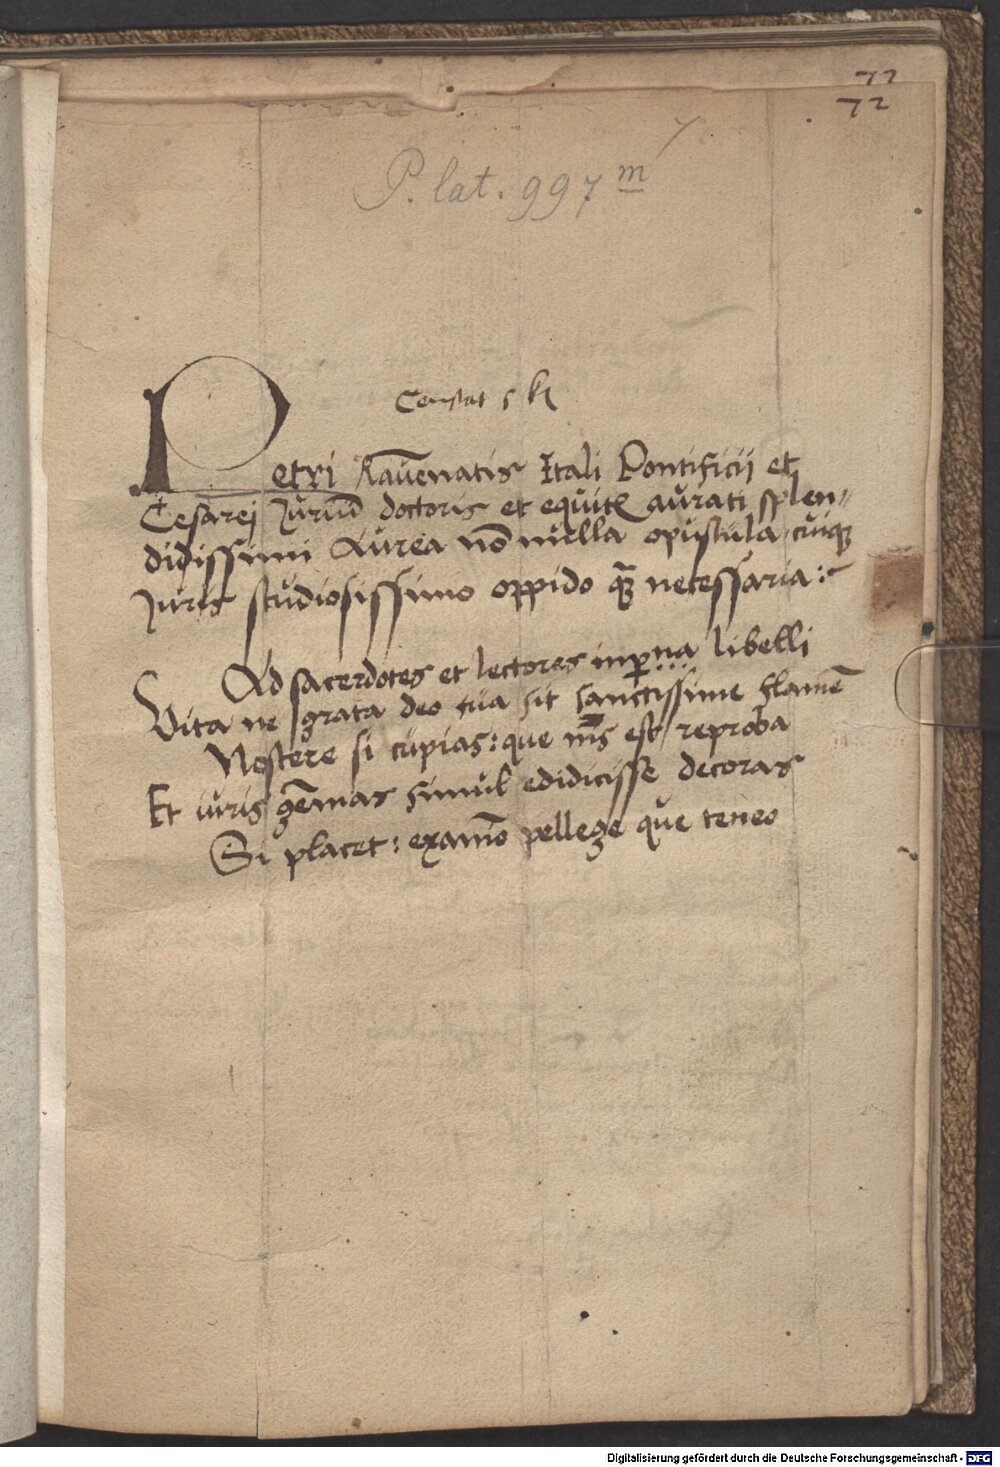 72
72
P. lat. 997 m
Constat
Petri Rave̅natis Itali Pontificij et
Cesarej Juriu̅ doctoris et equit aurati splen-
didissimi Aurea no̅nulla opuscula cuiqꝫ
Juris studiosissimo oppido necessaria:
Ad sacerdotes et lectores libelli
Vita ne grata deo tua sit sanctissime flame̅
Noscere si cupias: que est reproba
Et iuris ge̅mas simul edidicisse decoras
Si placet: pellege que teneo
Digitalisierung gefördert durch die Deutsche Forschungsgemeinschaft - DFG